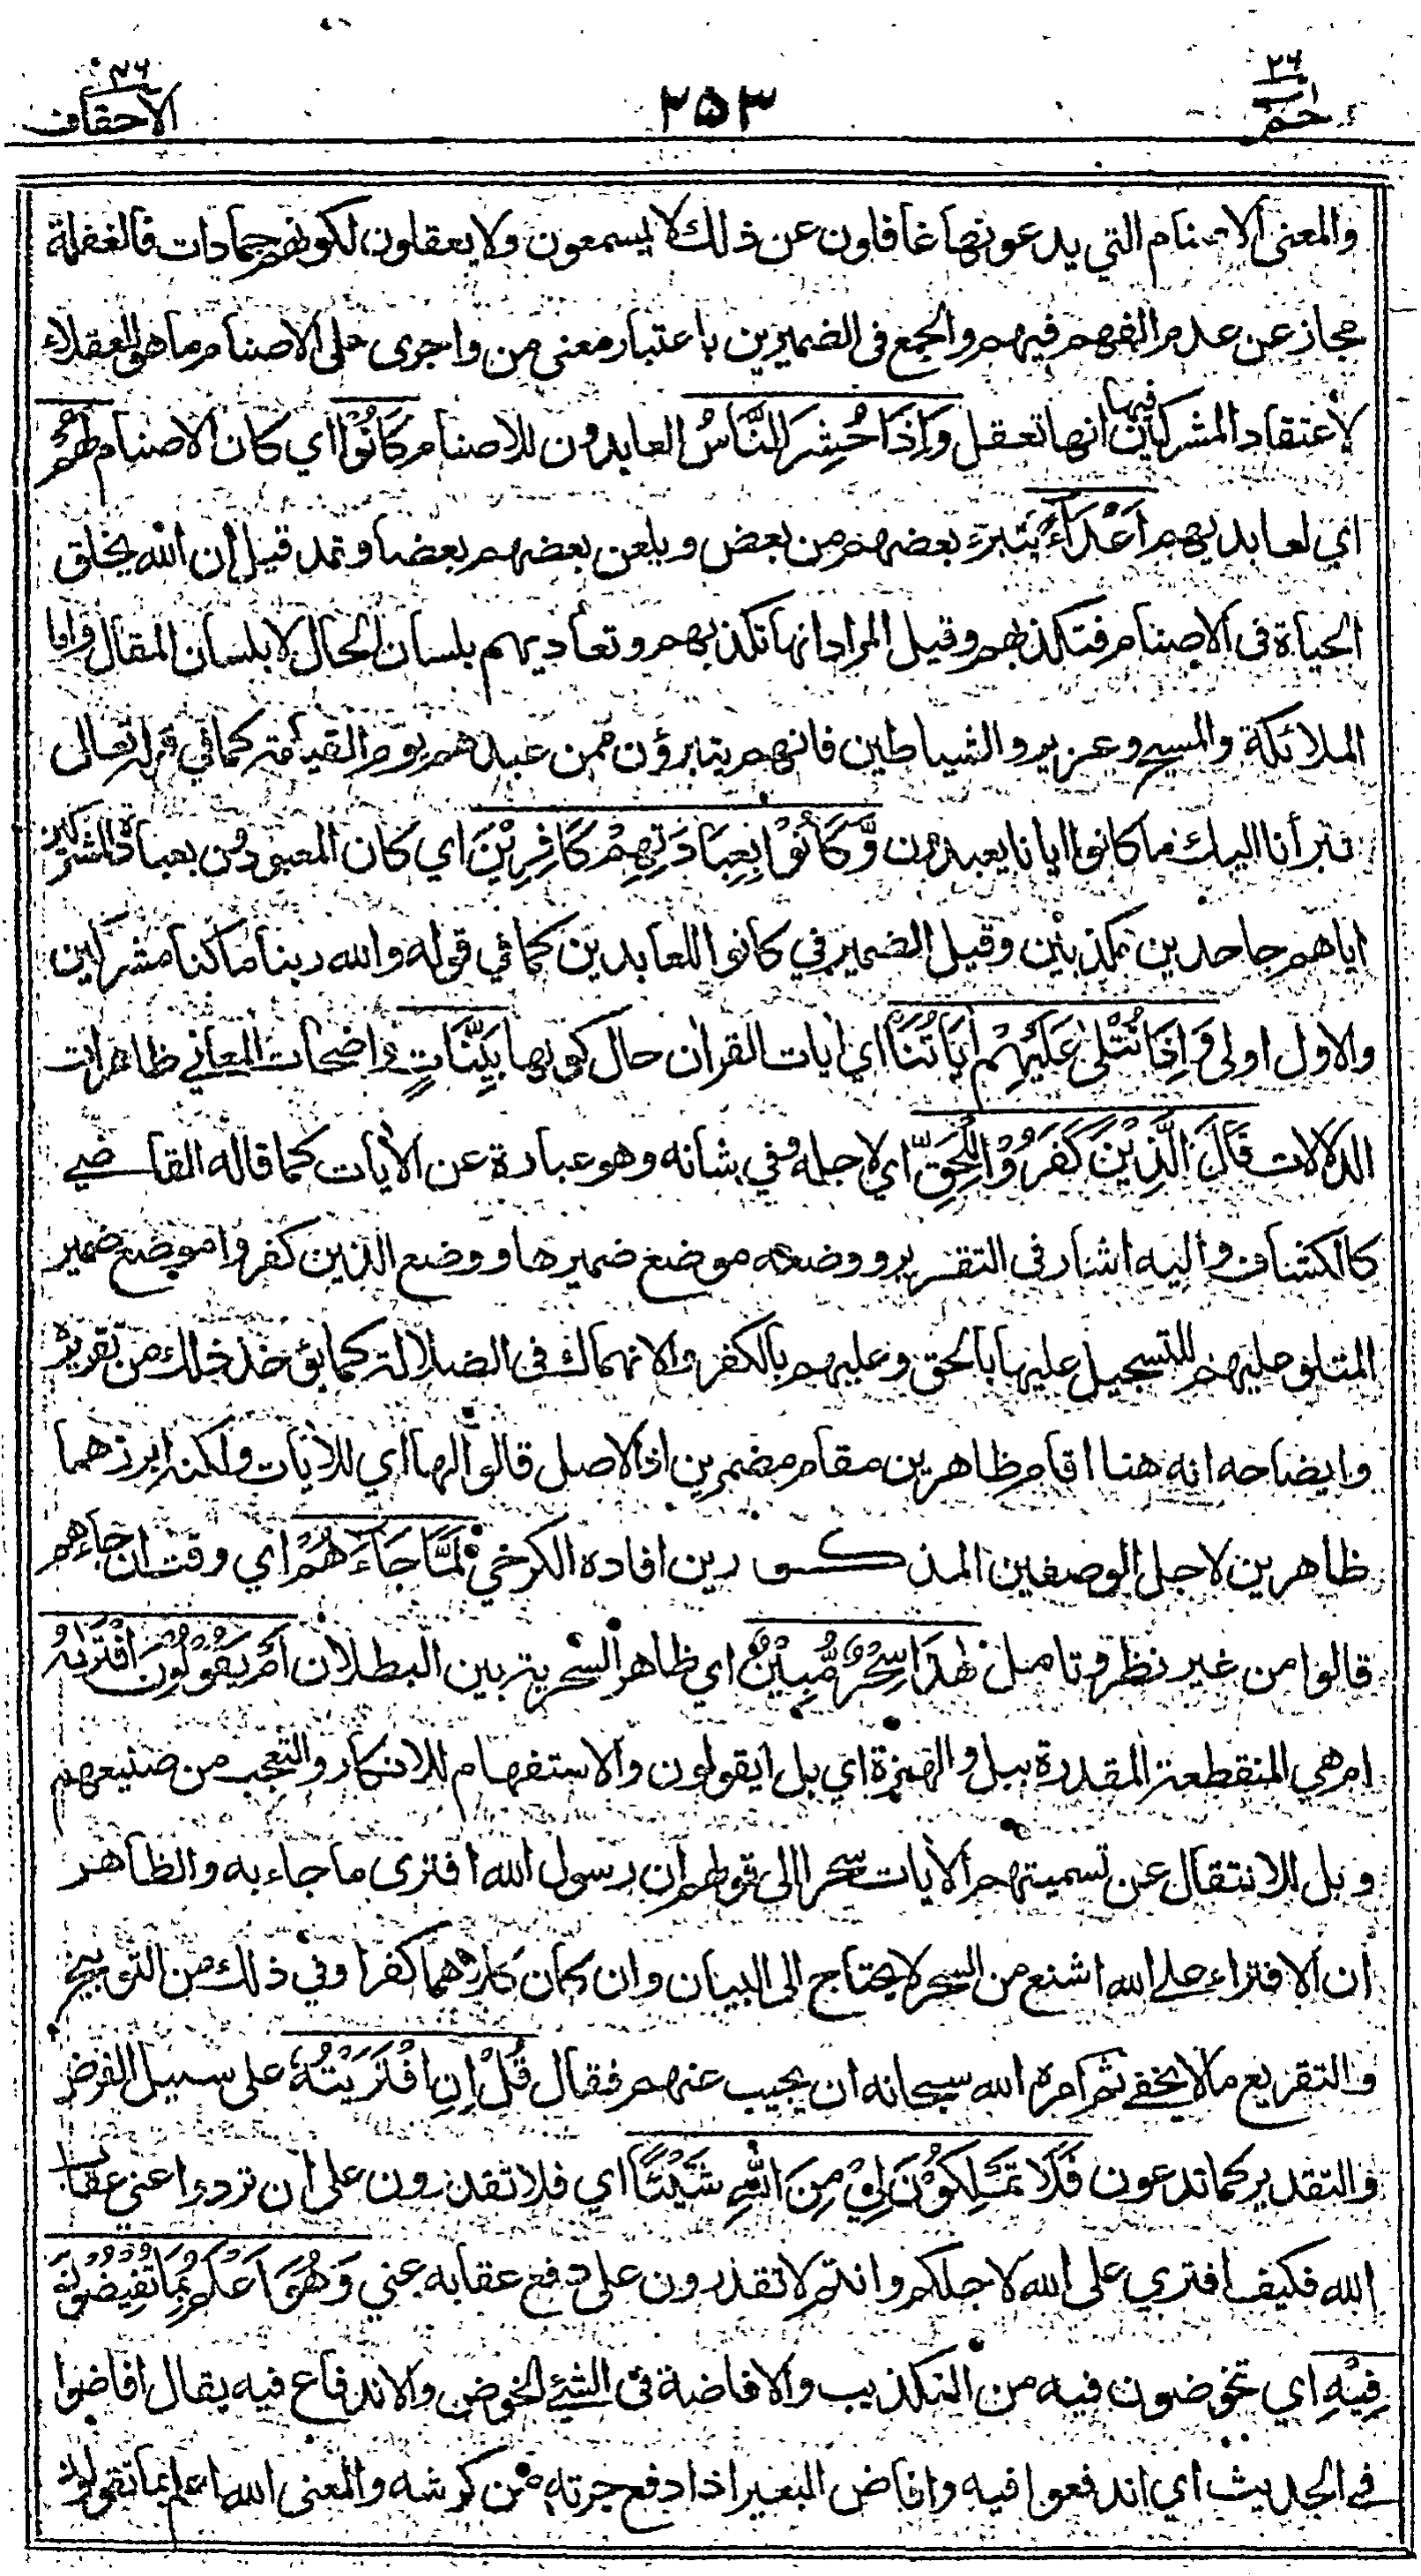 ٢٦
حم
٢٥٣
٤٦
الاحقاف
والمعنى الاصنام التي يدعونها غافلون عن ذلك لا يسمعون ولا يعقلون لكونهم جمادات فالغفلة
مجاز عن عدم الفهم فيهم والجمع في الضميرين باعتبار معنى من واجرى على الاصنام ما هو للعقلاء
لاعتقاد المشركين فيها انها تعقل وَاِذَا حُشِرَ النَّاسُ العابدون للاصنام كَانُوْا اي كان الاصنام لَهُمْ
اي لعابديهم اَعْدَآءً يتبرء بعضهم من بعض ويلعن بعضهم بعضا وقد قيل ان الله يخلق
الحياة في الاصنام فتكذبهم وقيل المراد انها تكذبهم وتعاديهم بلسان الحال لا بلسان المقال واما
الملائكة والمسيح وعزير والشياطين فانهم يتبرؤن ممن عبدهم يوم القيامة كما في قوله تعالى
تبرأنا اليك ما كانوا ايانا يعبدون وَّكَانُوْا بِعِبَادَتِهِمْ كَافِرِيْنَ اي كان المعبودون بعبادة المشركين
اياهم جاحدين مكذبين وقيل الضمير في كانوا للعابدين كما في قوله والله ربنا ما كنا مشركين
والاول اولى وَاِذَا تُتْلٰى عَلَيْهِمْ اٰيَاتُنَا اي ايات القران حال كونها بَيِّنَاتٍ واضحات المعاني ظاهرات
الدلالات قَالَ الَّذِيْنَ كَفَرُوْا لِلْحَقِّ اي لاجله وفي شانه وهو عبارة عن الأيات كما قاله القاضي
كالكشاف واليه اشار في التقرير ووضعه موضع ضميرها ووضع الذين كفروا موضع ضمير
المتلو عليهم للتسجيل عليها بالحق وعليهم بالكفر والانهماك في الضلالة كما يؤخذ ذلك من تقريره
وايضاحه انه هنا اقام ظاهرين مقام مضمرين اذ الاصل قالوا لها اي للأيات ولكنه ابرزهما
ظاهرين لاجل الوصفين المذكورين افاده الكرخي لَمَّا جَآءَهُمْ اي وقت ان جاءهم
قالوا من غير نظر وتامل هٰذَا سِحْرٌ مُّبِيْنٌ اي ظاهر السحرية بين البطلان اَمْ يَقُوْلُوْنَ افْتَرٰىهُ
ام هي المنقطعة المقدرة ببل والهمزة اي بل ايقولون والاستفهام للانكار والتعجب من صنيعهم
وبل للانتقال عن تسميتهم الأيات سحرا الى قولهم ان رسول الله افترى ما جاء به والظاهر
ان الافتراء على الله اشنع من السحر لا يحتاج الى البيان وان كان كلاهما كفرا وفي ذلك من التوبيخ
والتقريع ما لا يخفى ثم امره الله سبحانه ان يجيب عنهم فقال قُلْ اِنِ افْتَرَيْتُهُ على سبيل الفرض
والتقدير كما تدعون فَلَا تَمْلِكُوْنَ لِيْ مِنَ اللّٰهِ شَيْئًا اي فلا تقدرون على ان تردوا عني عقاب
الله فكيف افتري على الله لاجلكم وانتم لا تقدرون على دفع عقابه عني وَهُوَ اَعْلَمُ بِمَا تُفِيْضُوْنَ
فِيْهِ اي تخوضون فيه من التكذيب والافاضة في الشئ الخوض والاندفاع فيه يقال افاضوا
في الحديث اي اندفعوا فيه وافاض البعير اذا دفع جرته من كرشه والمعنى الله اعلم بما تقولون